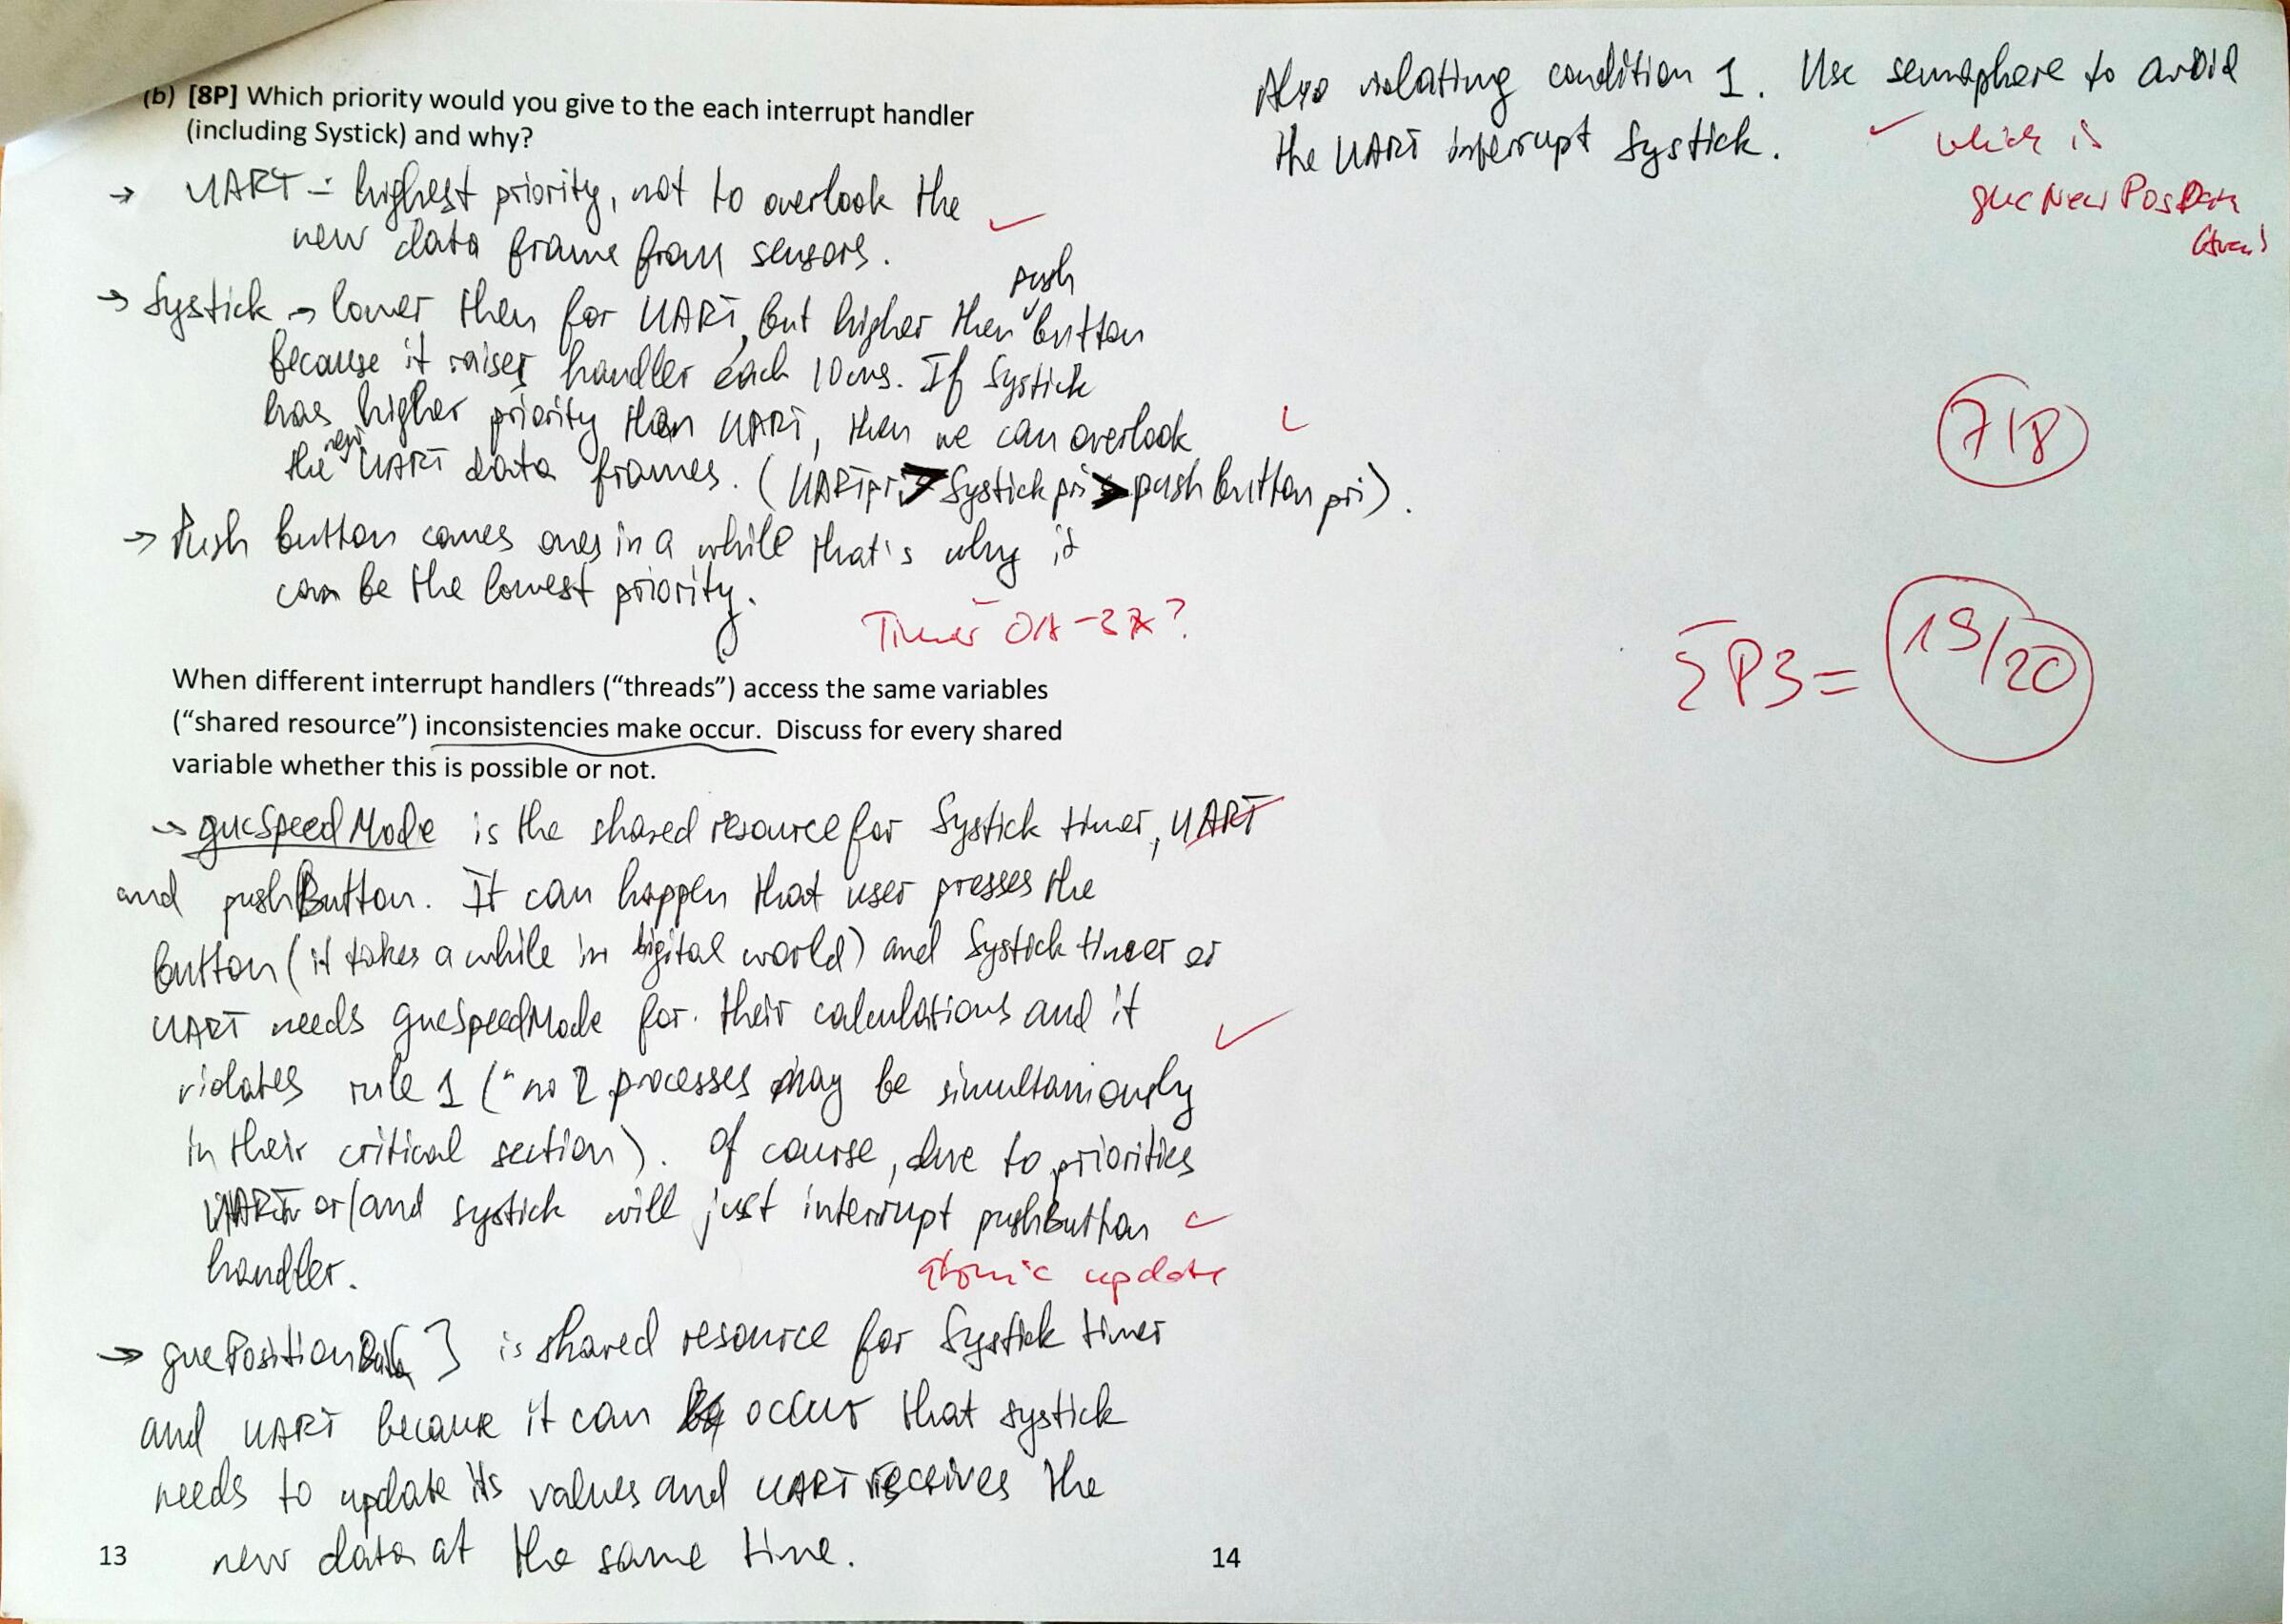 (b) [8P] Which priority would you give to the each interrupt handler
(including Systick) and why?
→ UART - highest priority, not to overlook the
new data frame from sensors.
push
→ Systick → lower then for UART, but higher then button
because it raises handler each 10ms. If Systick
has higher priority than UART, then we can overlook
the new UART data frames. (UART pri > Systick pri > push button pri).
→ Push button comes ones in a while that's why it
can be the lowest priority.
Timer 0A-3A?
When different interrupt handlers (“threads”) access the same variables
(“shared resource”) inconsistencies make occur. Discuss for every shared
variable whether this is possible or not.
→ gucSpeedMode is the shared resource for Systick timer, UART
and pushButton. It can happen that user presses the
button (it takes a while in digital world) and Systick timer or
UART needs gucSpeedMode for their calculations and it
violates rule 1 ("no 2 processes may be simultaniously
in their critical section). Of course, due to priorities
UART or/and systick will just interrupt pushButton
handler.
atomic update
→ gucPositionData[ ] is shared resource for Systick timer
and UART because it can occur that systick
needs to update its values and UART receives the
new data at the same time.
13
Also violating condition 1. Use semaphore to avoid
the UART interrupt Systick.
which is
gucNewPosData
7/8
ΣP3 = 19/20
14